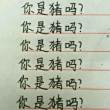 你是猪吗?
你是猪吗?
你是猪吗?
你是猪吗?
你是猪吗?
你是猪吗?